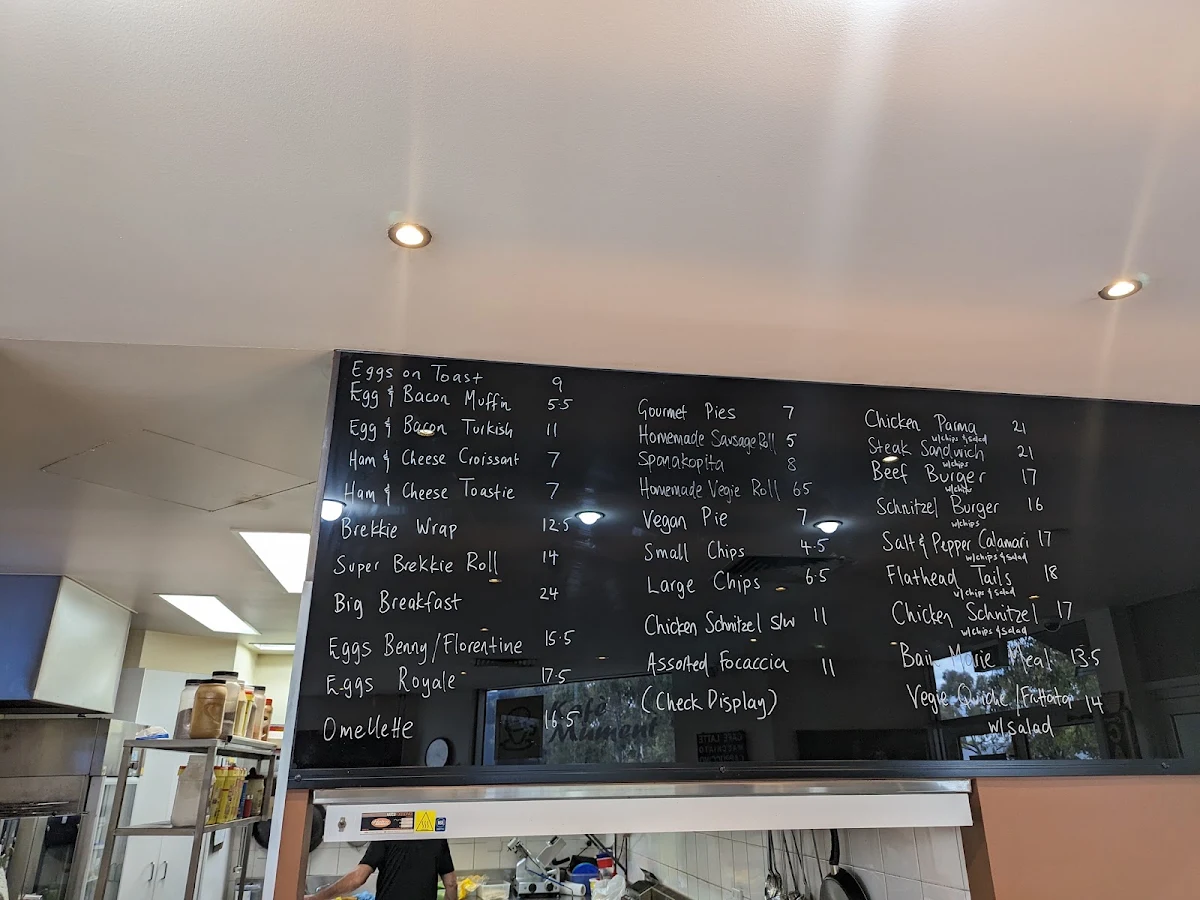 Eggs on Toast 9
Egg & Bacon Muffin 5.5
Egg & Bacon Turkish 11
Ham & Cheese Croissant 7
Ham & Cheese Toastie 7
Brekkie Wrap 12.5
Super Brekkie Roll 14
Big Breakfast 24
Eggs Benny/Florentine 15.5
Eggs Royale 17.5
Omellette 16.5
Gourmet Pies 7
Homemade Sausage Roll 5
Spanakopita 8
Homemade Vegie Roll 6.5
Vegan Pie 7
Small Chips 4.5
Large Chips 6.5
Chicken Schnitzel s/w 11
Assorted Focaccia 11
(Check Display)
Chicken Parma 21
w/chips & salad
Steak Sandwich 21
w/chips
Beef Burger 17
w/chips
Schnitzel Burger 16
w/chips
Salt & Pepper Calamari 17
w/chips & salad
Flathead Tails 18
w/chips & salad
Chicken Schnitzel 17
w/chips & salad
Bain Marie Meal 13.5
Vegie Quiche/Frittata 14
w/salad